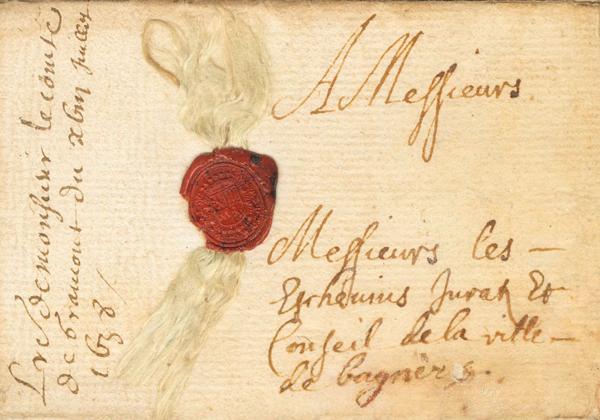 A Messieurs
Messieurs les —
Eschevins Juratz Et
Conseil de la ville —
de bagneres.
Lre de monsieur le comte
de gramont du xbiij juillet
1638 /